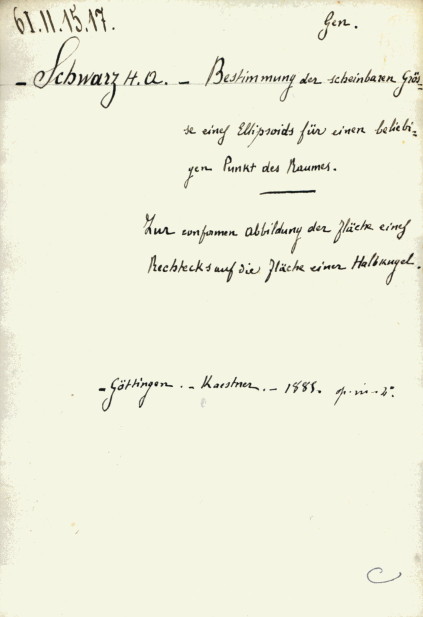 61.11.15.17.
Gen.
- Schwarz H. A. - Bestimmung der scheinbaren Grös=
se eines Ellipsoids für einen beliebi=
gen Punkt des Raumes.
Zur conformen Abbildung der Fläche eines
Rechtecks auf die Fläche einer Halbkugel.
- Göttingen. - Kaestner. - 1885. op. in - 4°.
C